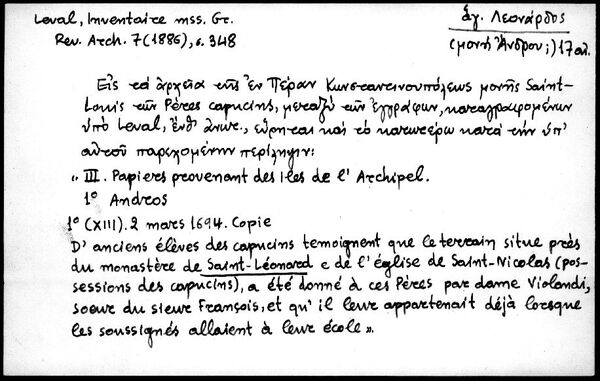 Laval, Inventaire mss. Gr.
Rev. Arch. 7 (1886), σ. 348
Ἁγ. Λεονάρδος
(μονὴ Ἄνδρου;) 17 αἰ.
Εἰς τὰ ἀρχεῖα τῆς ἐν Πέραν Κωνσταντινουπόλεως μονῆς Saint-
Louis τῶν Pères capucins, μεταξὺ τῶν ἐγγράφων, καταγραφομένων
ὑπὸ Laval, ἔνθ' ἀνωτ., εὕρηται καὶ τὸ κατωτέρω κατὰ τὴν ὑπ'
αὐτοῦ παρεχομένην περίληψιν:
« III. Papiers provenant des îles de l'Archipel.
1º Andros
1º (XIII). 2 mars 1694. Copie
D'anciens élèves des capucins temoignent que le terrain situe près
du monastère de Saint-Léonard e de l'église de Saint-Nicolas (pos-
sessions des capucins), a été donné à ces Pères par dame Violandi,
soeur du sieur François, et qu'il leur appartenait déjà lorsque
les soussignés allaient à leur école ».